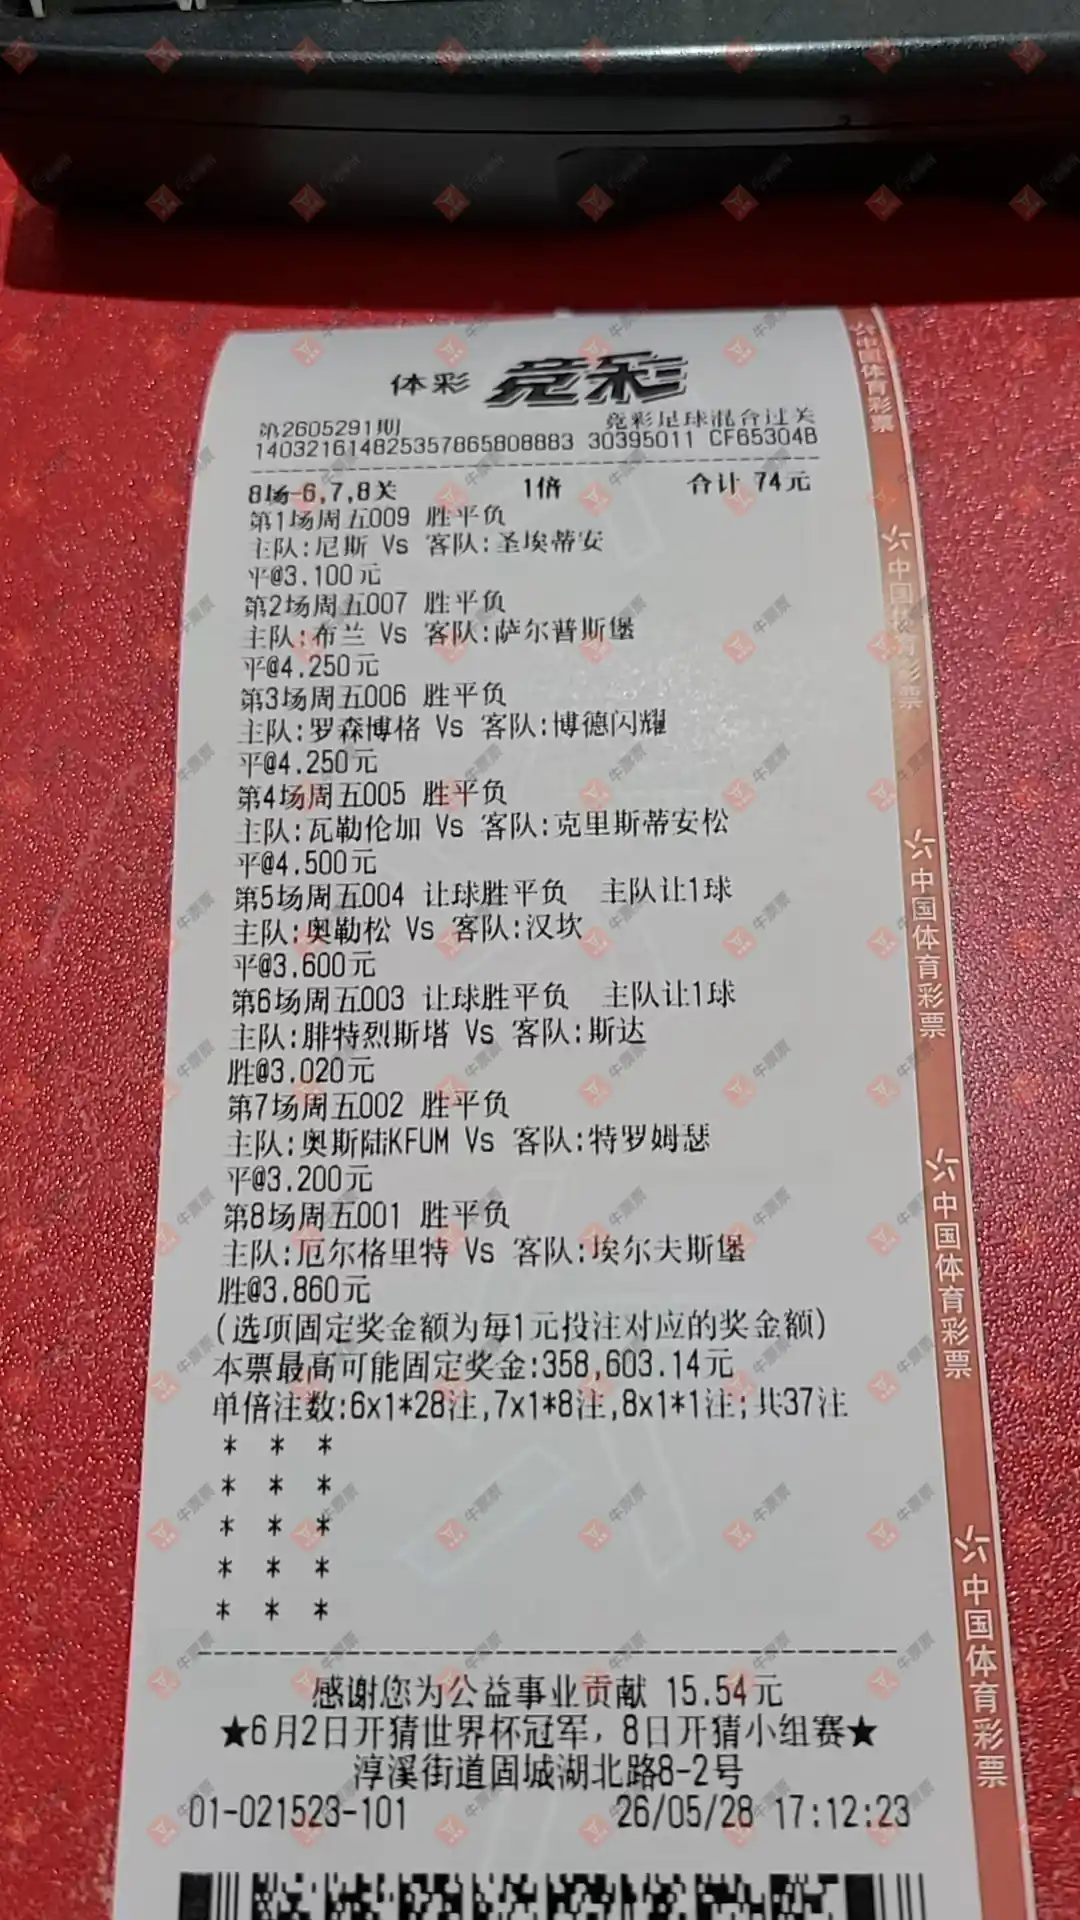 体彩 竞彩
第2605291期 竞彩足球混合过关
140321614825357865808883 30395011 CF65304B
8场-6,7,8关 1倍 合计 74元
第1场周五009 胜平负
主队:尼斯 Vs 客队:圣埃蒂安
平@3.100元
第2场周五007 胜平负
主队:布兰 Vs 客队:萨尔普斯堡
平@4.250元
第3场周五006 胜平负
主队:罗森博格 Vs 客队:博德闪耀
平@4.250元
第4场周五005 胜平负
主队:瓦勒伦加 Vs 客队:克里斯蒂安松
平@4.500元
第5场周五004 让球胜平负 主队让1球
主队:奥勒松 Vs 客队:汉坎
平@3.600元
第6场周五003 让球胜平负 主队让1球
主队:腓特烈斯塔 Vs 客队:斯达
胜@3.020元
第7场周五002 胜平负
主队:奥斯陆KFUM Vs 客队:特罗姆瑟
平@3.200元
第8场周五001 胜平负
主队:厄尔格里特 Vs 客队:埃尔夫斯堡
胜@3.860元
(选项固定奖金额为每1元投注对应的奖金额)
本票最高可能固定奖金:358,603.14元
单倍注数:6x1*28注,7x1*8注,8x1*1注;共37注
* * *
* * *
* * *
* * *
* * *
感谢您为公益事业贡献 15.54元
★6月2日开猜世界杯冠军，8日开猜小组赛★
淳溪街道固城湖北路8-2号
01-021523-101 26/05/28 17:12:23
中国体育彩票
中国体育彩票
中国体育彩票
中国体育彩票
中国体育彩票
牛票票